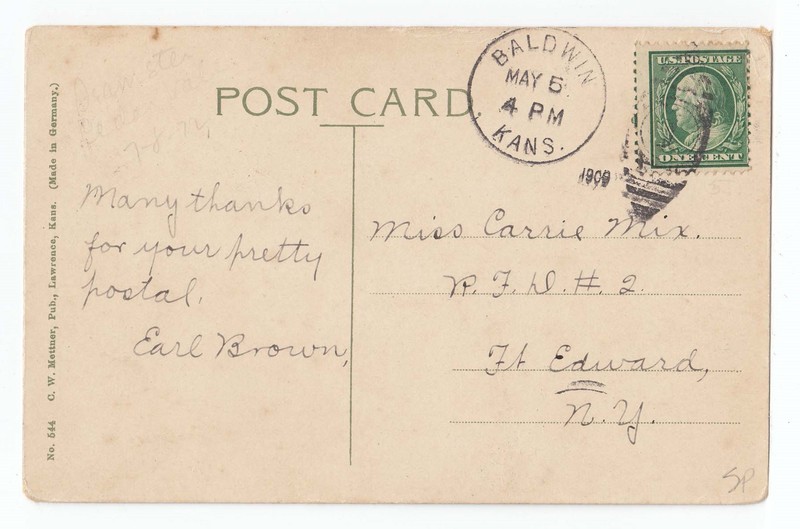 POST CARD
BALDWIN
MAY 5
4 PM
KANS.
1909
U.S. POSTAGE
ONE CENT
7-8-72
Many thanks
for your pretty
postal.
Earl Brown,
Miss Carrie Mix.
R.F.D. #. 2.
Ft Edward,
N.Y.
No. 544 C. W. Mettner, Pub., Lawrence, Kans. (Made in Germany.)
SP